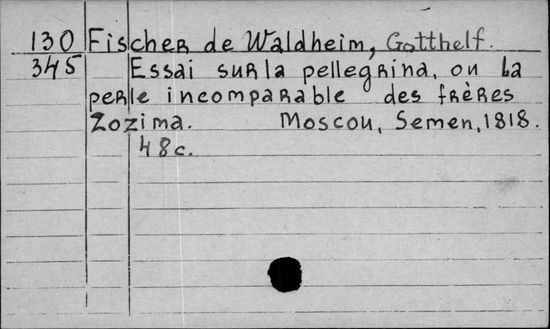 130 Fischer de Waldheim, Gotthelf.
345 Essai sur la pellegrina, ou la
perle incomparable des frères
Zozima. Moscou, Semen, 1818.
48 c.